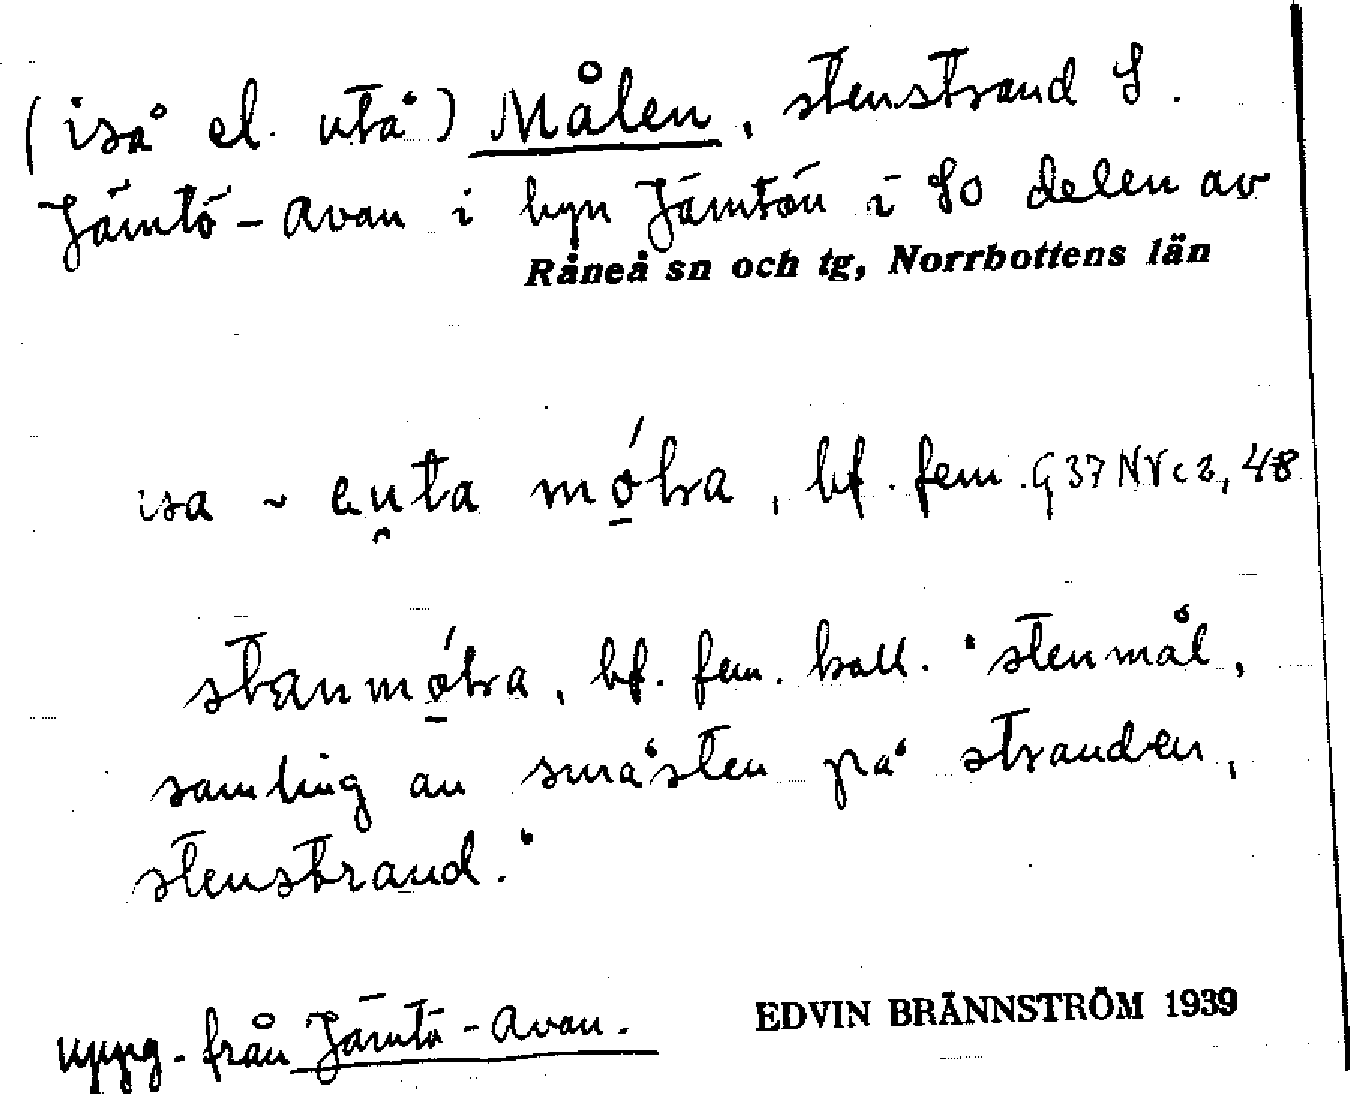 (iså el. utå) Målen, stenstrand S.
Jämtö-Avan i byn Jämtön i SO delen av
Råneå sn och tg, Norrbottens län
isa ~ au̯ta mó̱lra, bf. fem. G37 NVc2, 48
stanmó̱lra, bf. fem. koll. 'stenmål,
samling av småsten på stranden,
stenstrand.'
uppg. från Jämtö-Avan.
EDVIN BRÄNNSTRÖM 1939